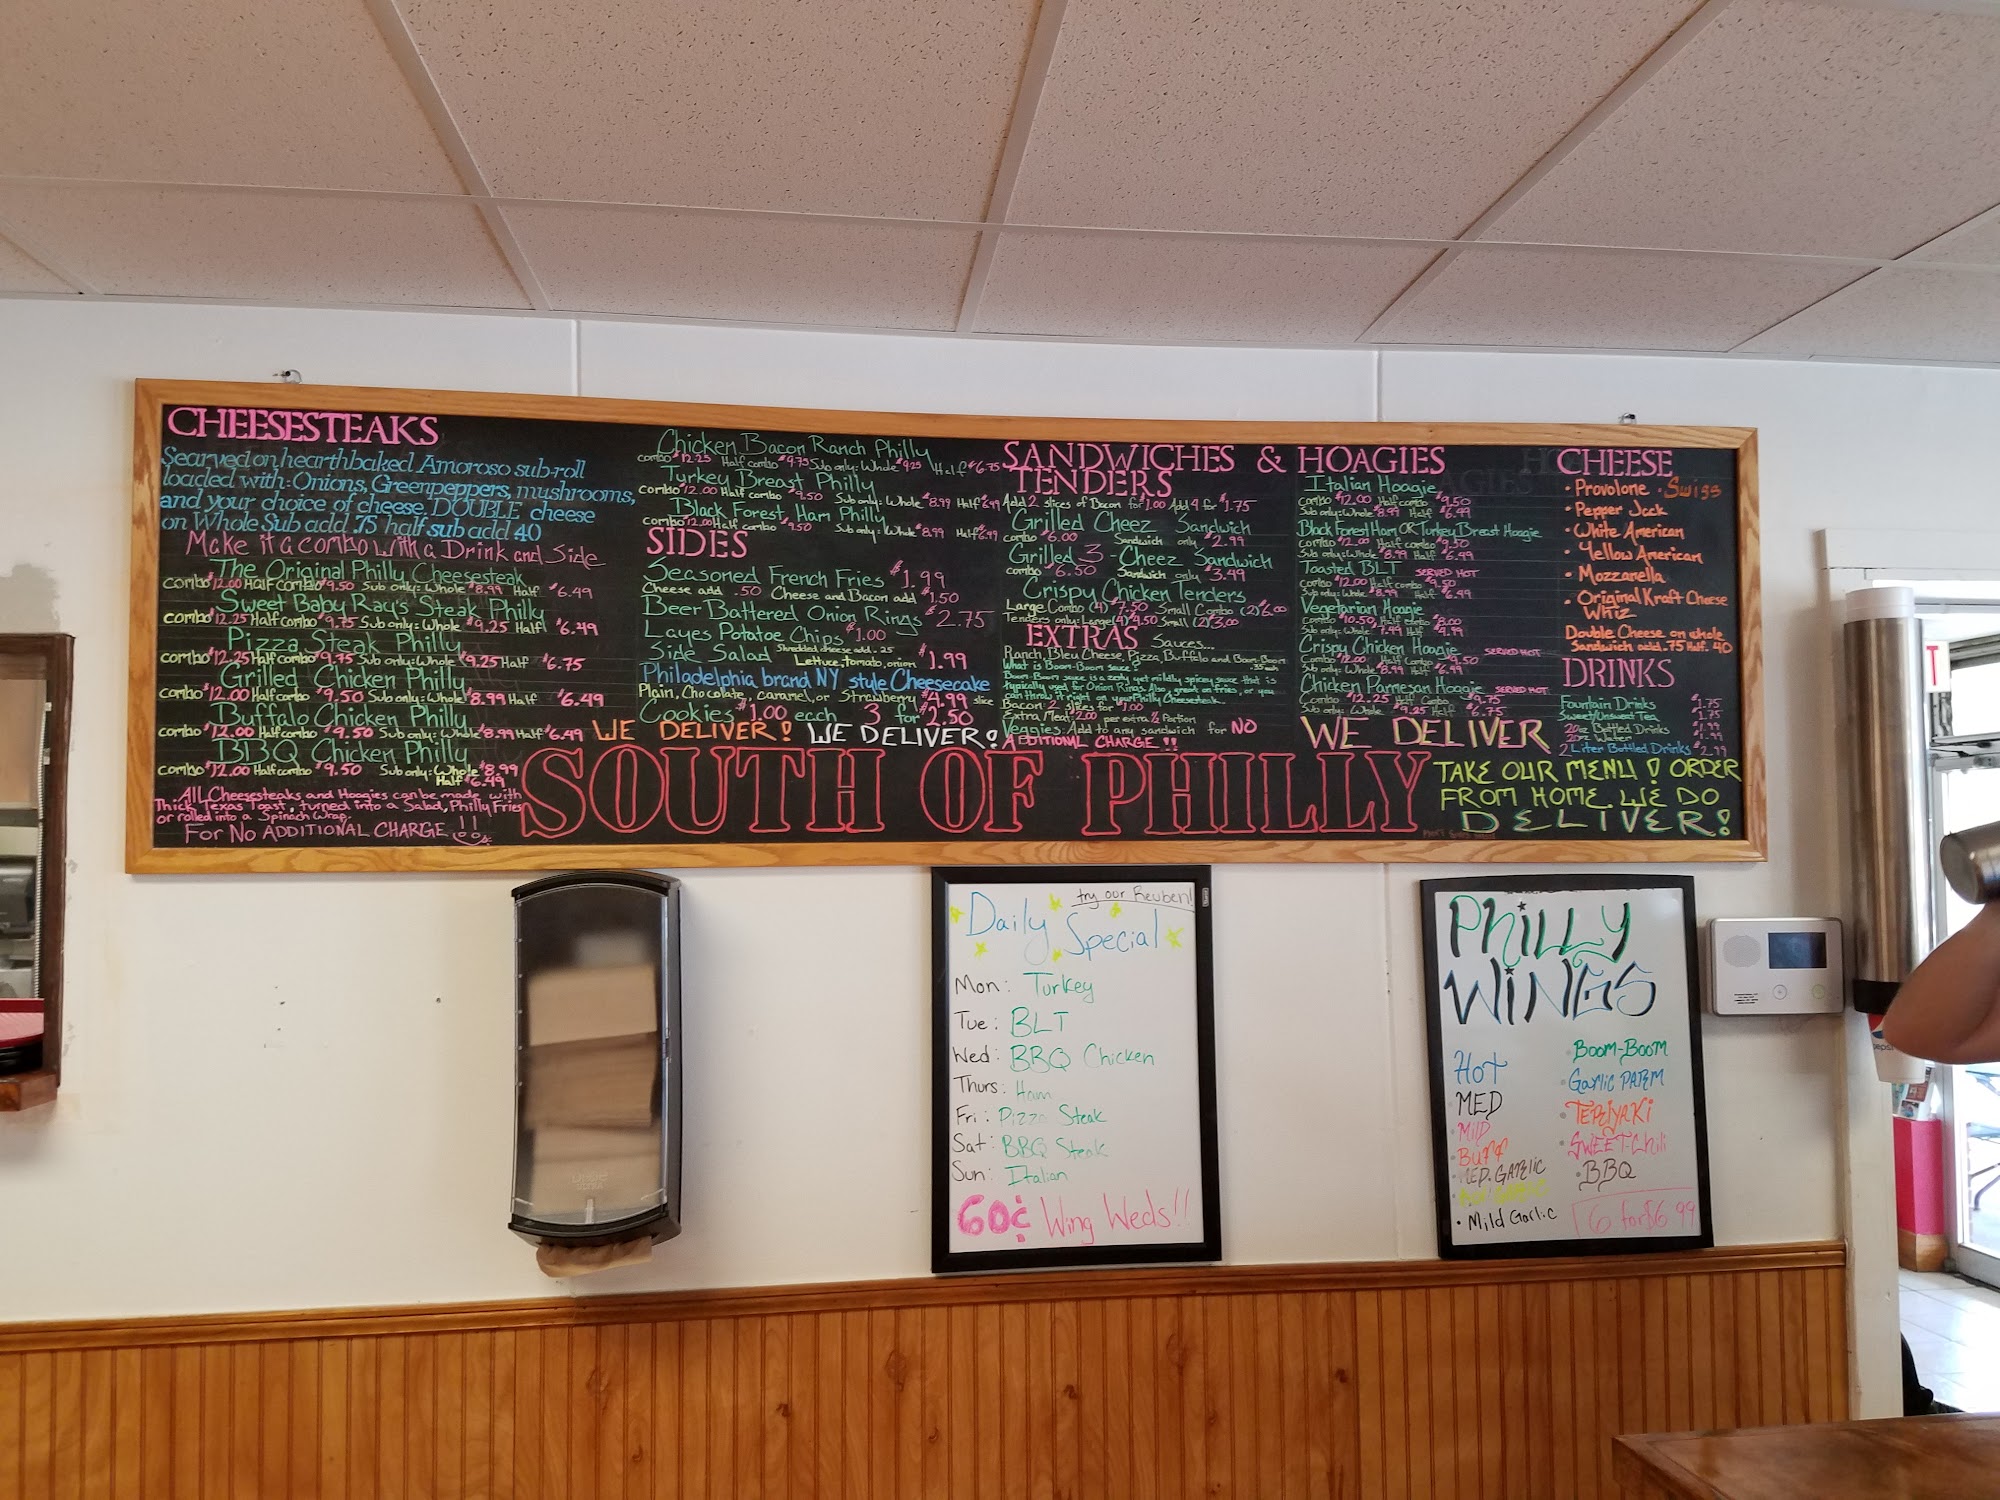 CHEESESTEAKS
Searved on hearthbaked Amoroso sub-roll
loaded with: Onions, Greenpeppers, mushrooms,
and your choice of cheese. DOUBLE cheese
on Whole Sub add .75 half sub add 40
Make it a combo with a Drink and Side
The Original Philly Cheesesteak
combo $12.00 Half combo $9.50 Sub only: Whole $8.99 Half $6.49
Sweet Baby Ray's Steak Philly
combo $12.25 Half Combo $9.75 Sub only: Whole $9.25 Half $6.49
Pizza Steak Philly
combo $12.25 Half combo $9.75 Sub only: Whole $9.25 Half $6.75
Grilled Chicken Philly
combo $12.00 Half combo $9.50 Sub only: Whole $8.99 Half $6.49
Buffalo Chicken Philly
combo $12.00 Half Combo $9.50 Sub only: Whole $8.99 Half $6.49
BBQ Chicken Philly
combo $12.00 Half combo $9.50 Sub only: Whole $8.99
Half $6.49
All Cheesesteaks and Hoagies can be made with
Thick Texas Toast, turned into a Salad, Philly Fries
or rolled into a Spinach Wrap.
For NO ADDITIONAL CHARGE!!
Chicken Bacon Ranch Philly
combo $12.25 Half combo $9.75 Sub only: Whole $9.25 Half $6.75
Turkey Breast Philly
combo $12.00 Half combo $9.50 Sub only: Whole $8.99 Half $6.49
Black Forest Ham Philly
combo $12.00 Half combo $9.50 Sub only: Whole $8.99 Half $6.99
SIDES
Seasoned French Fries $1.99
Cheese add .50 Cheese and Bacon add $1.50
Beer Battered Onion Rings $2.75
Layes Potatoe Chips $1.00
Side Salad Shredded cheese add .25
Lettuce, tomato, onion $1.99
Philadelphia brand NY style Cheesecake
Plain, Chocolate, caramel, or Strawberry $4.99 slice
Cookies $1.00 each 3 for $2.50
WE DELIVER! WE DELIVER!
SANDWICHES & HOAGIES
TENDERS
Add 2 slices of Bacon for $1.00 Add 4 for $1.75
Grilled Cheez Sandwich
combo $6.00 Sandwich only $2.99
Grilled 3-Cheez Sandwich
combo $6.50 Sandwich only $3.49
Crispy Chicken Tenders
Large Combo (4) $7.50 Small Combo (2) $6.00
Tenders only: Large (4) $4.50 Small (2) $3.00
EXTRAS Sauces...
Ranch, Bleu Cheese, Pizza, Buffalo and Boom-Boom
.35 each
What is Boom-Boom sauce?
Boom-Boom sauce is a zesty yet mildly spicey sauce that is
typically used for Onion Rings. Also great on fries, or you
can throw it right on your Philly Cheesesteak.
Bacon: 2 slices for $1.00
Extra Meat: $2.00 per extra ½ Portion
Veggies: Add to any sandwich for NO
ADDITIONAL CHARGE!!
Italian Hoagie
combo $12.00 Half combo $9.50
Sub only: Whole $8.99 Half $6.49
Black Forest Ham OR Turkey Breast Hoagie
combo $12.00 Half combo $9.50
Sub only: Whole $8.99 Half $6.49
Toasted BLT SERVED HOT
combo $12.00 Half combo $9.50
Sub only: Whole $8.99 Half $6.49
Vegetarian Hoagie
combo $10.50 Half combo $8.00
Sub only: Whole $7.49 Half $4.99
Crispy Chicken Hoagie SERVED HOT
Combo $12.00 Half Combo $9.50
Sub only: Whole $8.99 Half $6.49
Chicken Parmesan Hoagie SERVED HOT
Combo $12.25 Half Combo $9.75
Sub only: Whole $9.25 Half $6.75
WE DELIVER
CHEESE
• Provolone • Swiss
• Pepper Jack
• White American
• Yellow American
• Mozzarella
• Original Kraft Cheese
Whiz
Double Cheese on whole
Sandwich add .75 Half .40
DRINKS
Fountain Drinks $1.75
Sweet/Unsweet Tea $1.75
20oz Bottled Drinks $1.99
20oz Water $1.99
2 Liter Bottled Drinks $2.99
SOUTH OF PHILLY
TAKE OUR MENU! ORDER
FROM HOME. WE DO
DELIVER!
try our Reuben!
Daily
Special
Mon: Turkey
Tue: BLT
Wed: BBQ Chicken
Thurs: Ham
Fri: Pizza Steak
Sat: BBQ Steak
Sun: Italian
60¢ Wing Weds!!
PHILLY
WINGS
HOT
MED
MILD
BUFF
MED. GARLIC
• Mild Garlic
• BOOM-BOOM
• Garlic PARM
• TERIYAKI
• SWEET-Chili
• BBQ
6 for $6.99
pepsi